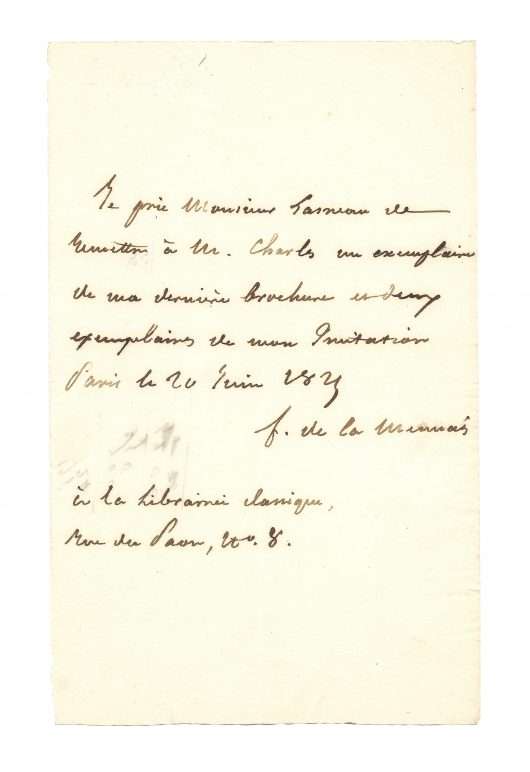 Je prie Monsieur de
remettre à M. Charles un exemplaire
de ma dernière brochure et deux
exemplaires de mon Imitation
Paris le 20 Juin
f. de la Mennais
à la Librairie classique,
Rue du Paon, No. 8.